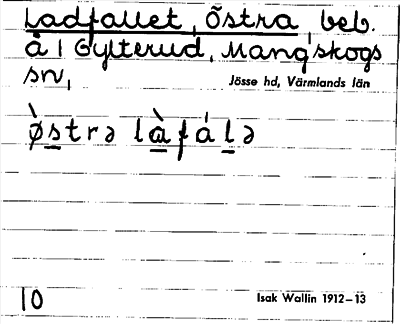 Ladfallet, Östra, beb.
å 1 Gylterud, Mangskogs
sn, Jösse hd, Värmlands län
ø̀strə lὰfálə
10 Isak Wallin 1912–13